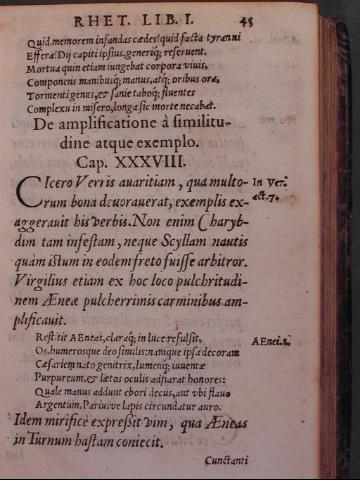 RHET. LIB. I. 45
Quid memorem infandas cædes? quid facta tyranni
Effera? Dij capiti ipsius, generiq; reseruent.
Mortua quin etiam iungebat corpora viuis,
Componens manibusq; manus, atq; oribus ora,
Tormenti genus, & sanie taboq; fluentes
Complexu in misero, longa sic morte necabat.
De amplificatione à similitu-
dine atque exemplo.
Cap. XXXVIII.
CIcero Verris auaritiam, qua multo- In Ver.
rum bona deuorauerat, exemplis ex- act. 7.
aggerauit his verbis. Non enim Charyb-
dim tam infestam, neque Scyllam nautis
quàm istum in eodem freto fuisse arbitror.
Virgilius etiam ex hoc loco pulchritudi-
nem Æneæ pulcherrimis carminibus am-
plificauit.
Restitit AEneas, claraq; in luce refulsit, AEnei. 1.
Os, humerosque deo similis: namque ipsa decoram
Cæsariem nato genitrix, lumenq; iuuentæ
Purpureum, & lætos oculis adflarat honores:
Quale manus addunt ebori decus, aut vbi flauo
Argentum, Pariusve lapis circundatur auro.
Idem mirificè expressit vim, qua Æneas
in Turnum hastam coniecit.
Cunctanti